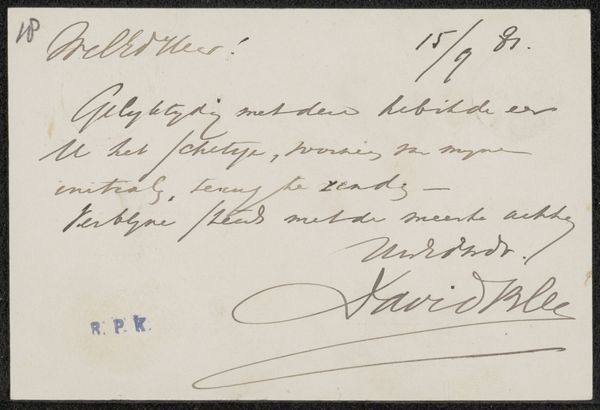 18
WelEdHeer! 15/9 81.
Gelyktydig met deze heb ik de eer
U het schetsje, voorzien van myne
initials, terug te zenden —
Verblyve steeds met de meeste achting
UwEdDwDr.
David Bles
R. P. K.